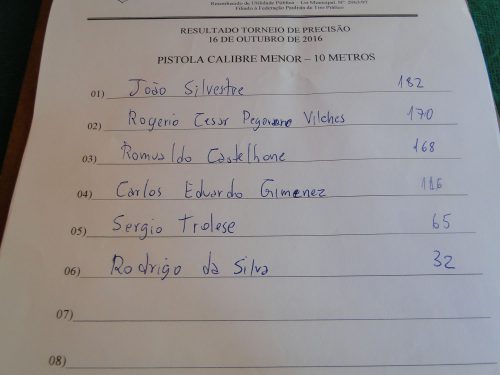 Reconhecido de Utilidade Pública – Lei Municipal Nº
Filiado à Federação Paulista de Tiro Prático
RESULTADO TORNEIO DE PRECISÃO
16 DE OUTUBRO DE 2016
PISTOLA CALIBRE MENOR – 10 METROS
01) João Silvestre 182
02) Rogerio Cesar Vilches 170
03) Romualdo Castelhone 168
04) Carlos Eduardo Gimenez 116
05) Sergio Trolese 65
06) Rodrigo da Silva 32
07)
08)